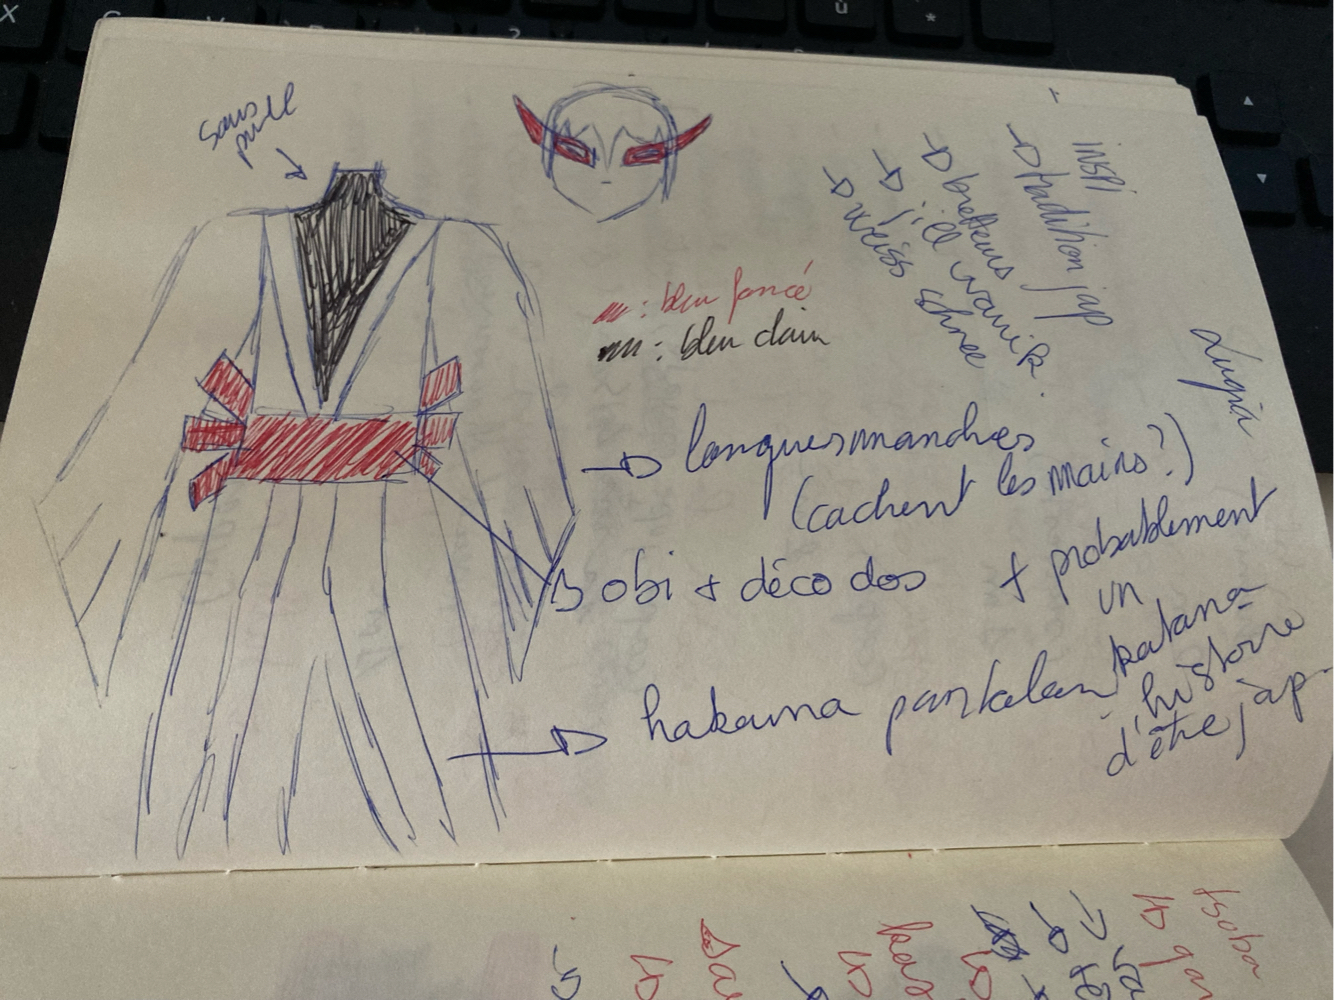 sous
pull
INSPI
tradition jap
bretteurs
jill warrick
weiss schnee
: bleu foncé
: bleu clair
Lugia
longues manches
(cachent les mains?)
obi + déco dos
+ probablement
un
katana
d'histoire
d'être jap
hakama pantalon
tsuba